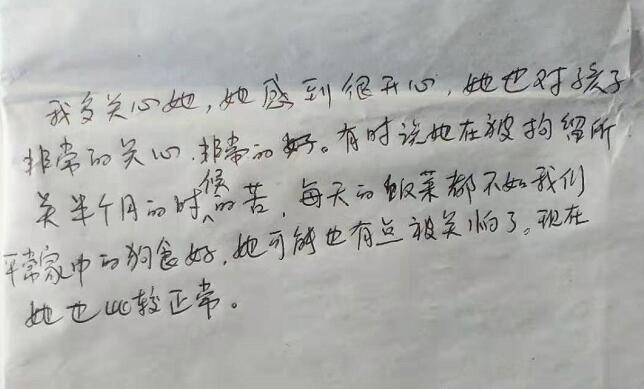 我多关心她，她感到很开心，她也对孩子
非常的关心，非常的好。有时说她在被拘留所
关半个月的时候的苦，每天的饭菜都不如我们
平常家中的狗食好，她可能也有点被关怕了。现在
她也比较正常。